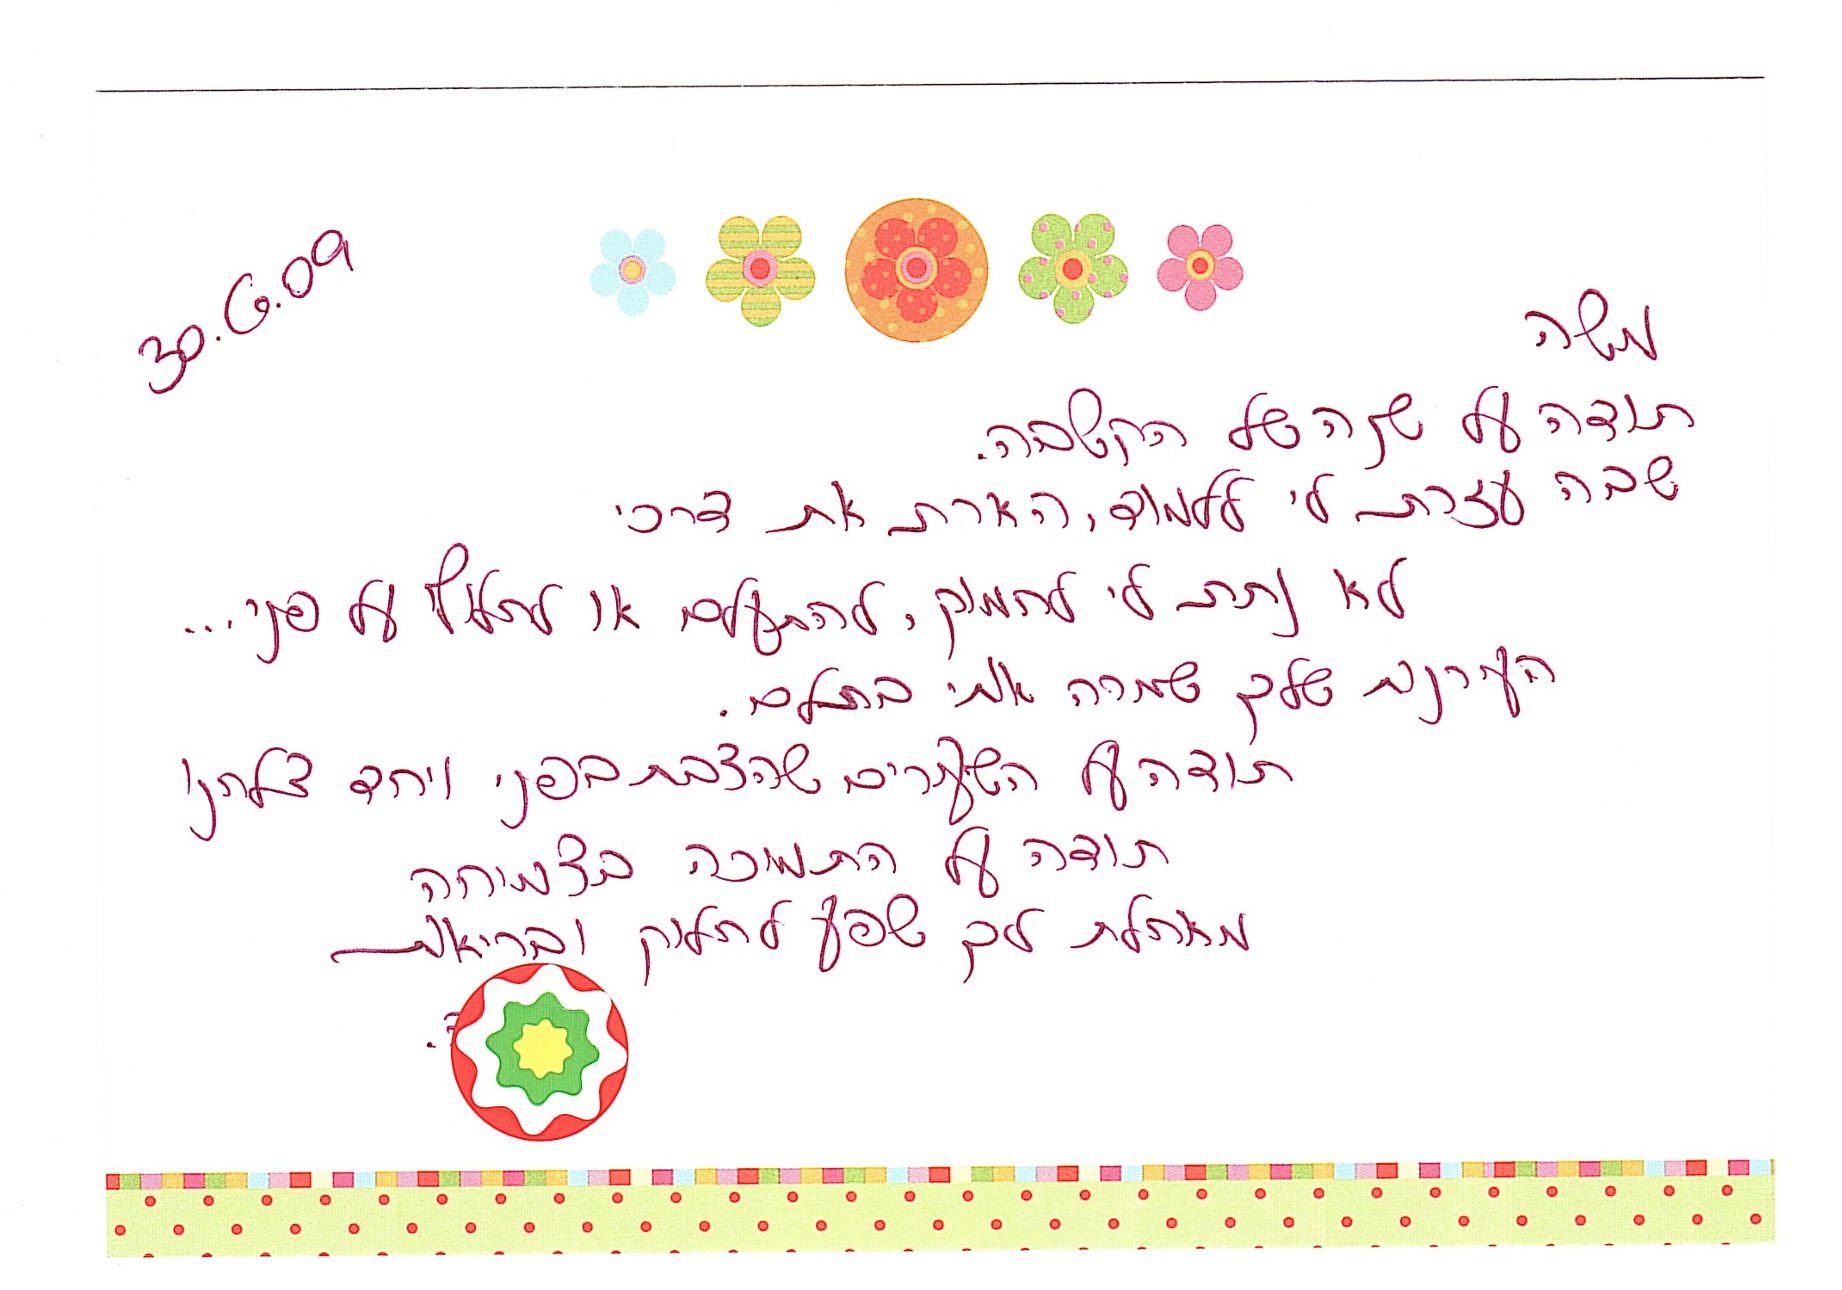 30.6.09
משה
תודה על שנה של הקשבה.
שבה עזרת לי ללמוד, הארת את דרכי
לא נתת לי לחמוק, להתעלם או לחלוף על פני...
העירנות שלך שמרה אותי בתלם.
תודה על השיעורים שהצבת בפני ויחד צלחנו
תודה על התמיכה בצמיחה
מאחלת לך שפע לחלוק ובריאות